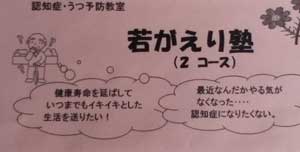 認知症・うつ予防教室
若がえり塾
(2 コース)
健康寿命を延ばして
いつまでもイキイキとした
生活を送りたい!
最近なんだかやる気が
なくなった‥‥
認知症になりたくない。